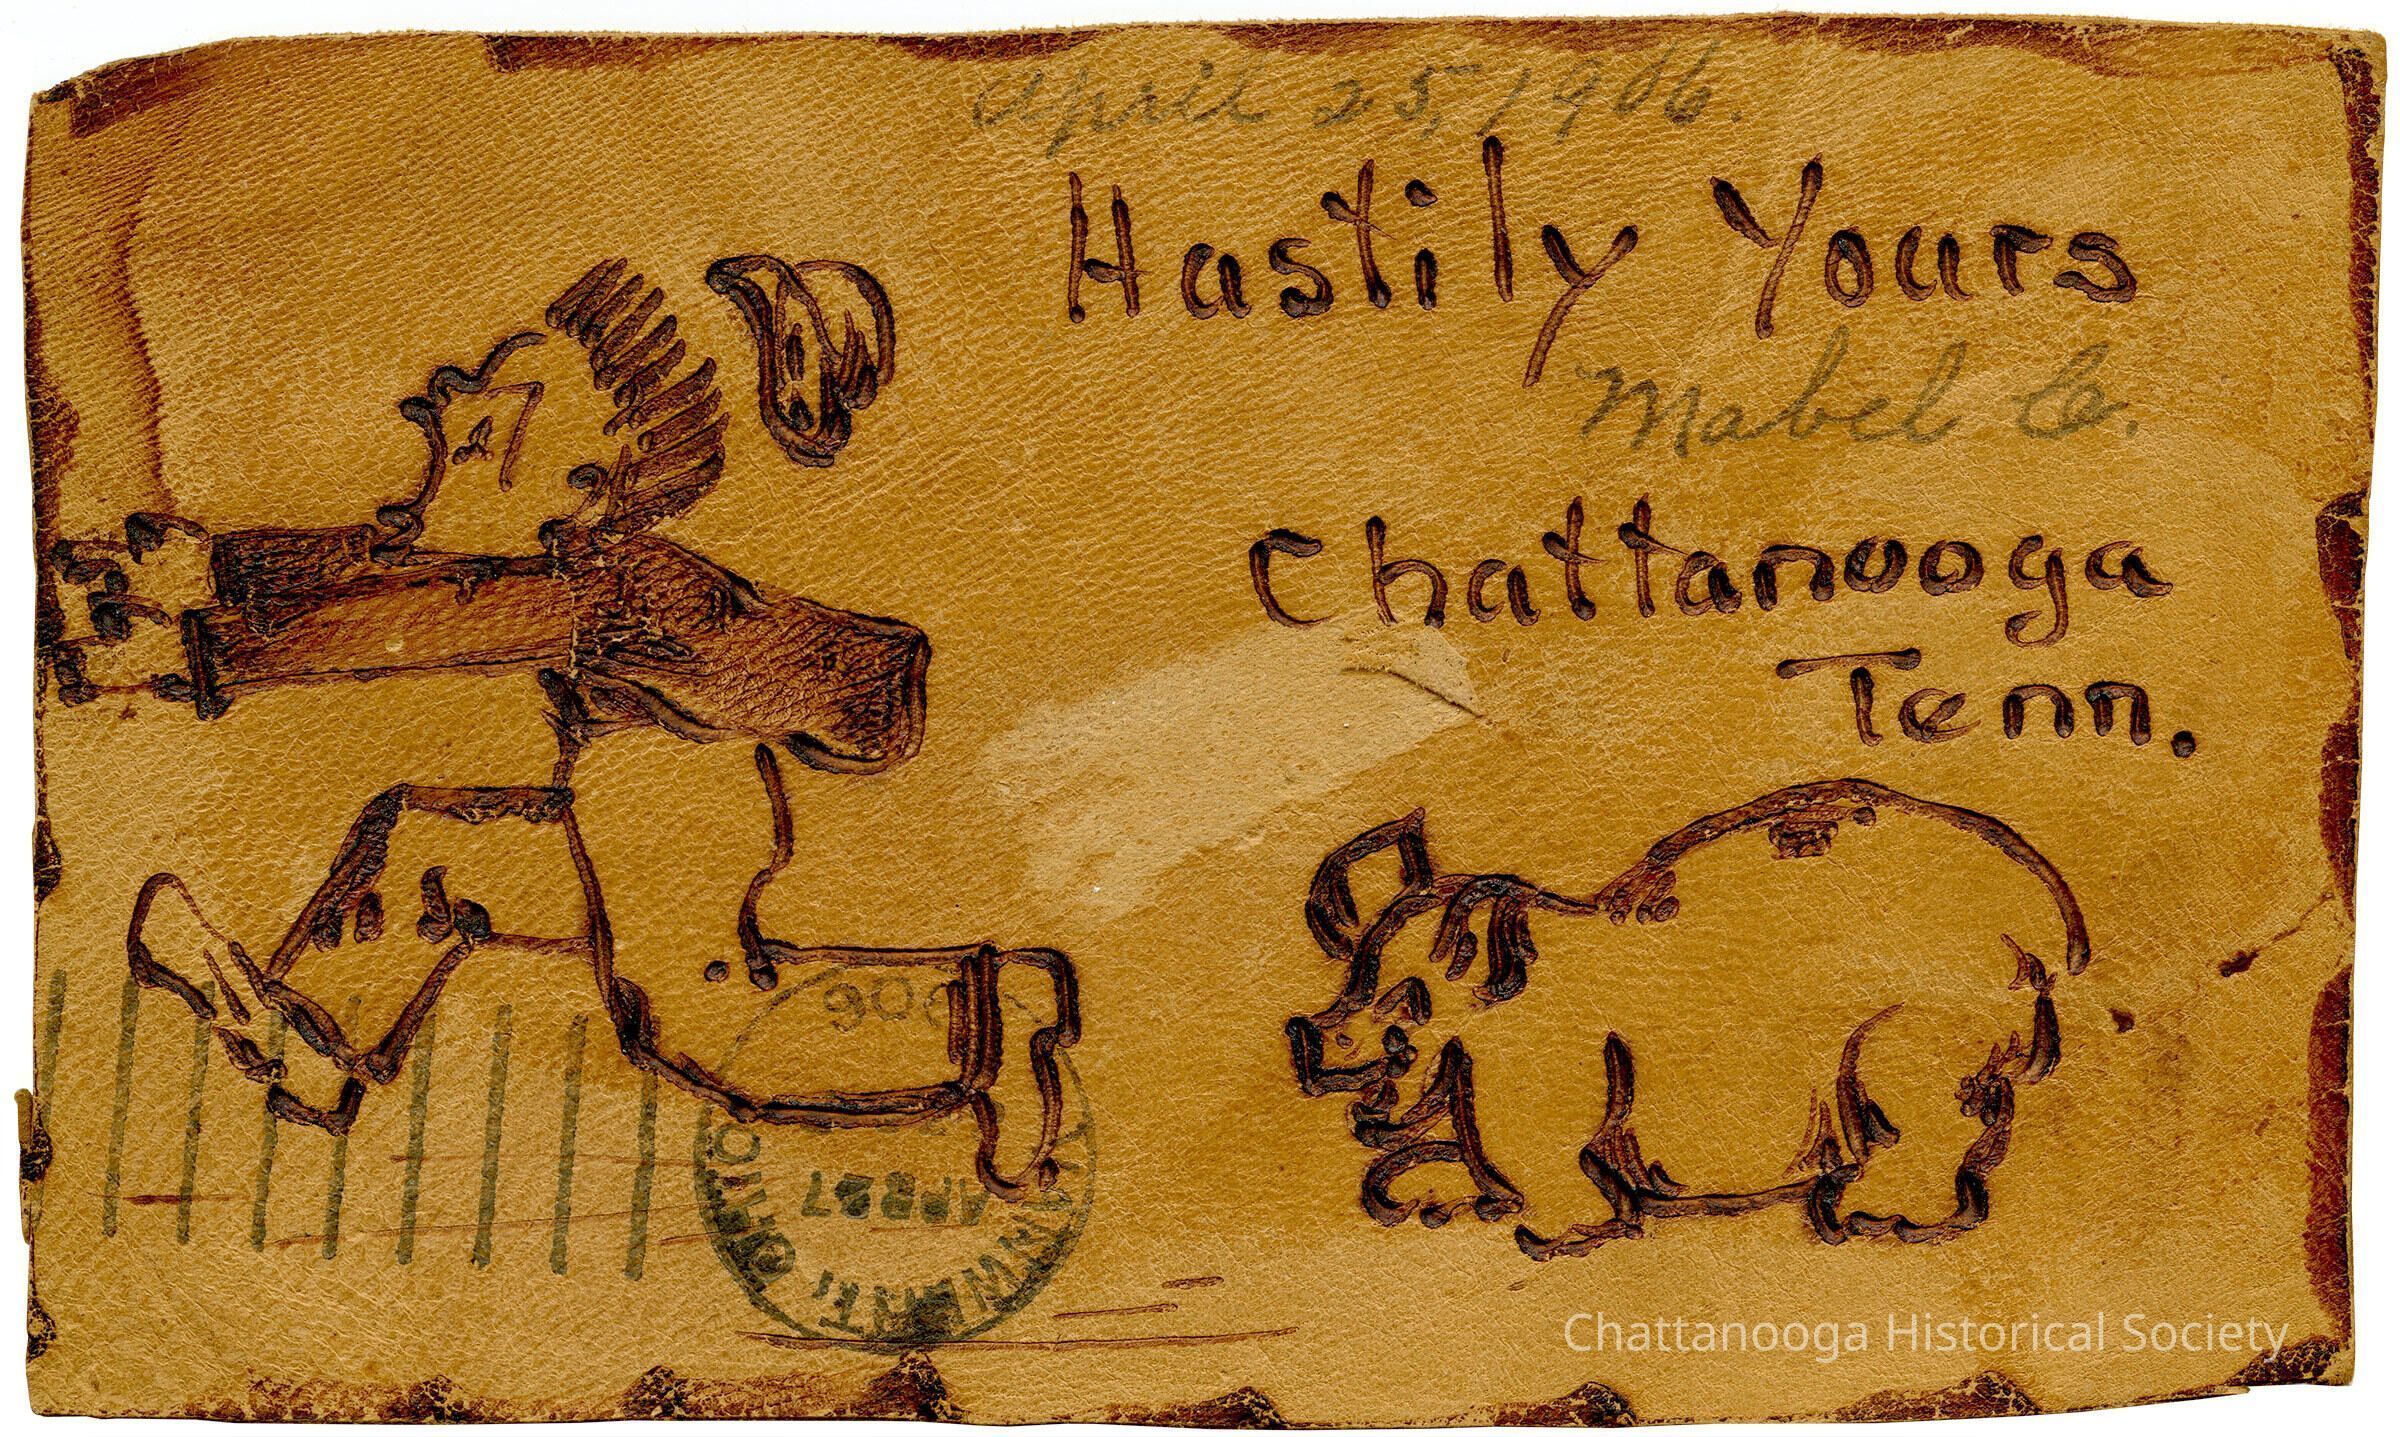 April 25, 1906.
Hastily Yours
Mabel C.
Chattanooga
Tenn.
1906
APR 27
OHIO
Chattanooga Historical Society